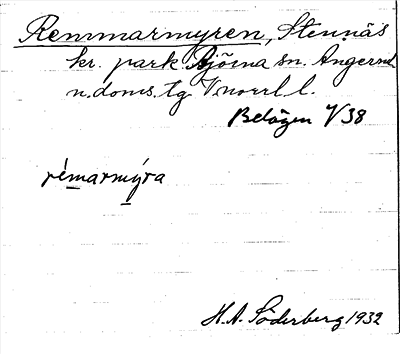 Remmarmyren, Stennäs
kr. park Björna sn. Angerml.
n. doms. tg Vnorrl l.
Belägen V/38
rémarmýra
H.A. Söderberg 1932